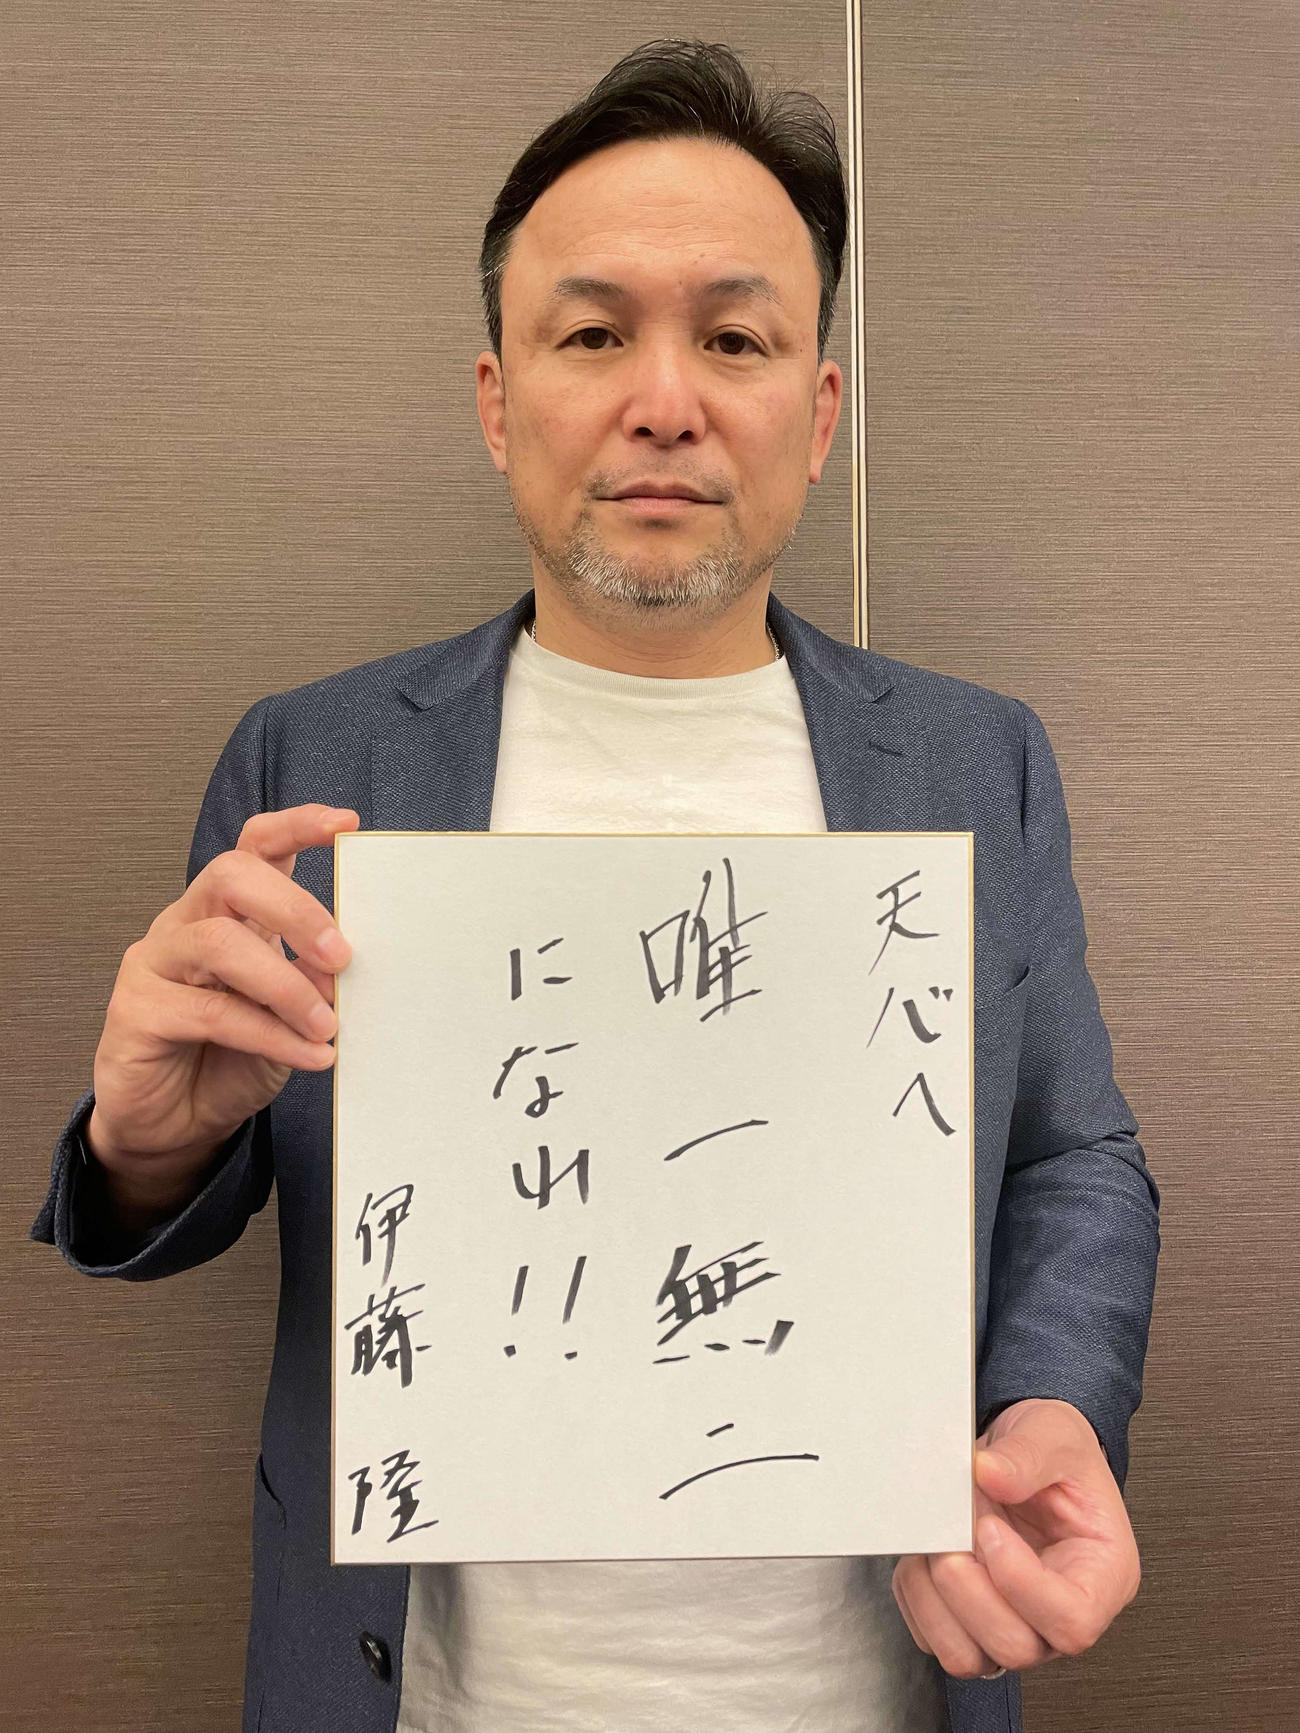 天心へ
唯一無二
になれ!!
伊藤 隆